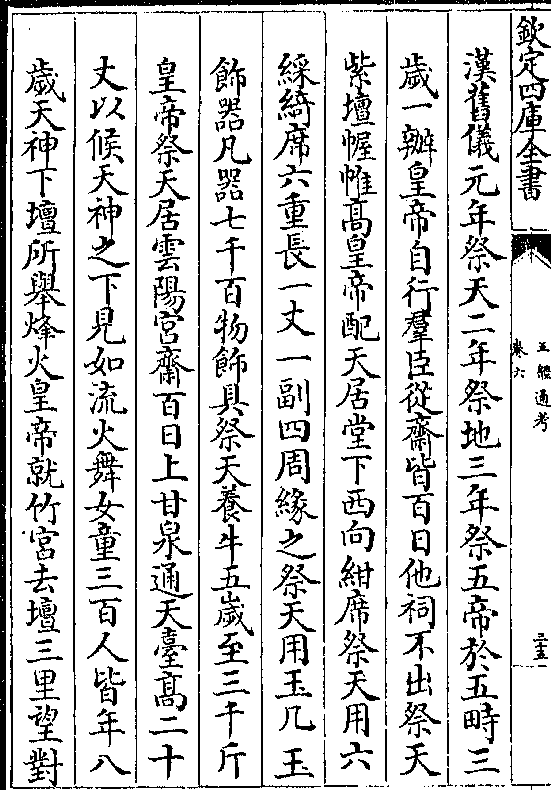 欽定四庫全書
五禮通考
卷六
三五
漢舊儀元年祭天二年祭地三年祭五帝於五畤三
歲一辦皇帝自行羣臣從齋皆百日他祠不出祭天
紫壇幄帷高皇帝配天居堂下西向紺席祭天用六
綵綺席六重長一丈一副四周緣之祭天用玉几玉
飾器凡器七千百物飾具祭天養牛五歲至三千斤
皇帝祭天居雲陽宮齋百日上甘泉通天臺高二十
丈以候天神之下見如流火舞女童三百人皆年八
歲天神下壇所舉烽火皇帝就竹宮去壇三里望對